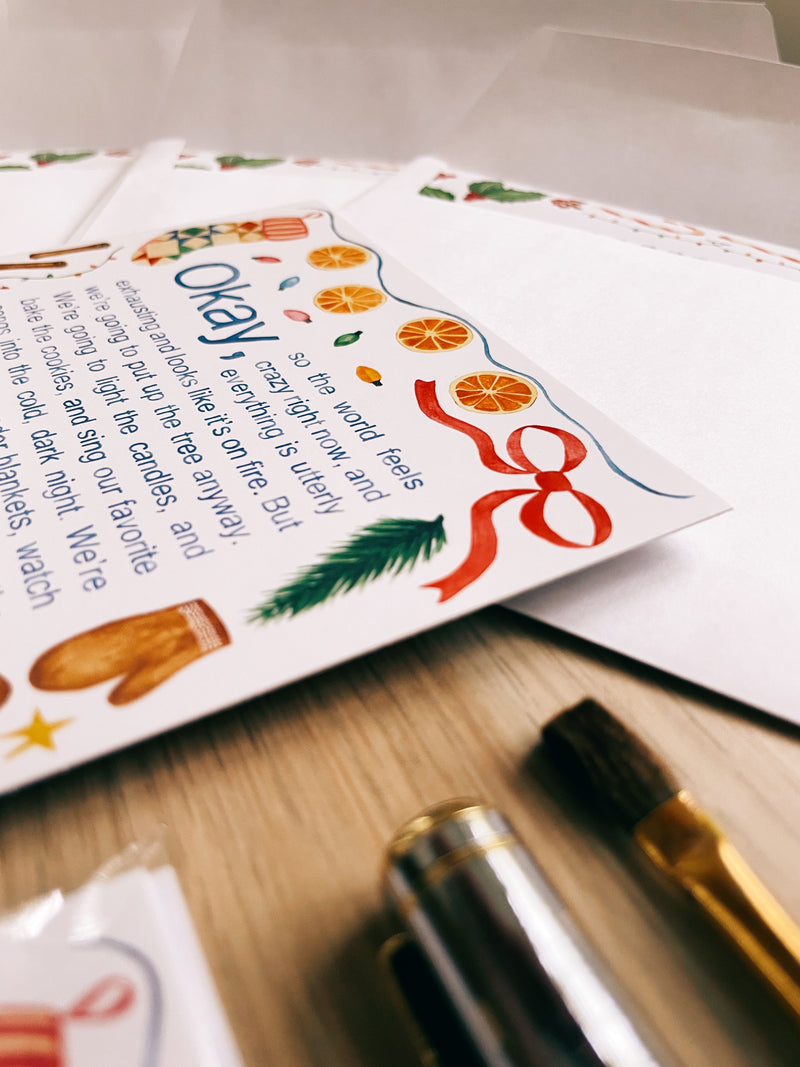 Okay, so the world feels
crazy right now, and
everything is utterly
exhausting and looks like it's on fire. But
we're going to put up the tree anyway.
We're going to light the candles, and
bake the cookies, and sing our favorite
songs into the cold, dark night. We're
blankets, watch